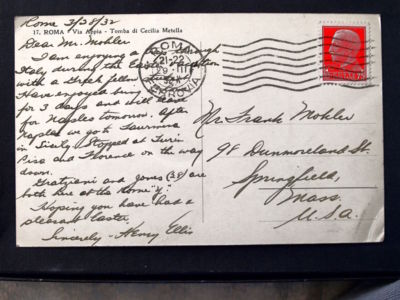 Rome 3/28/32
17. ROMA - Via Appia - Tomba di Cecilia Metella
Dear Mr. Mohler
I am enjoying a trip through
Italy during the Easter vacation
with a Greek fellow
Have enjoyed Rome
for 3 days and will leave
for Naples tomorrow. After
Naples we go to Taormina
in Sicily. Stopped at Turin
Pisa and Florence on the way
down.
and Jones (28) are
both here at the Rome "Y."
Hoping you have had a
pleasant Easter.
Sincerely - Henry Ellis
ROMA
21-22
29 III
FERROVIA
Mr. Frank Mohler
98 Dunmoreland St.
Springfield,
Mass.
U.S.A.